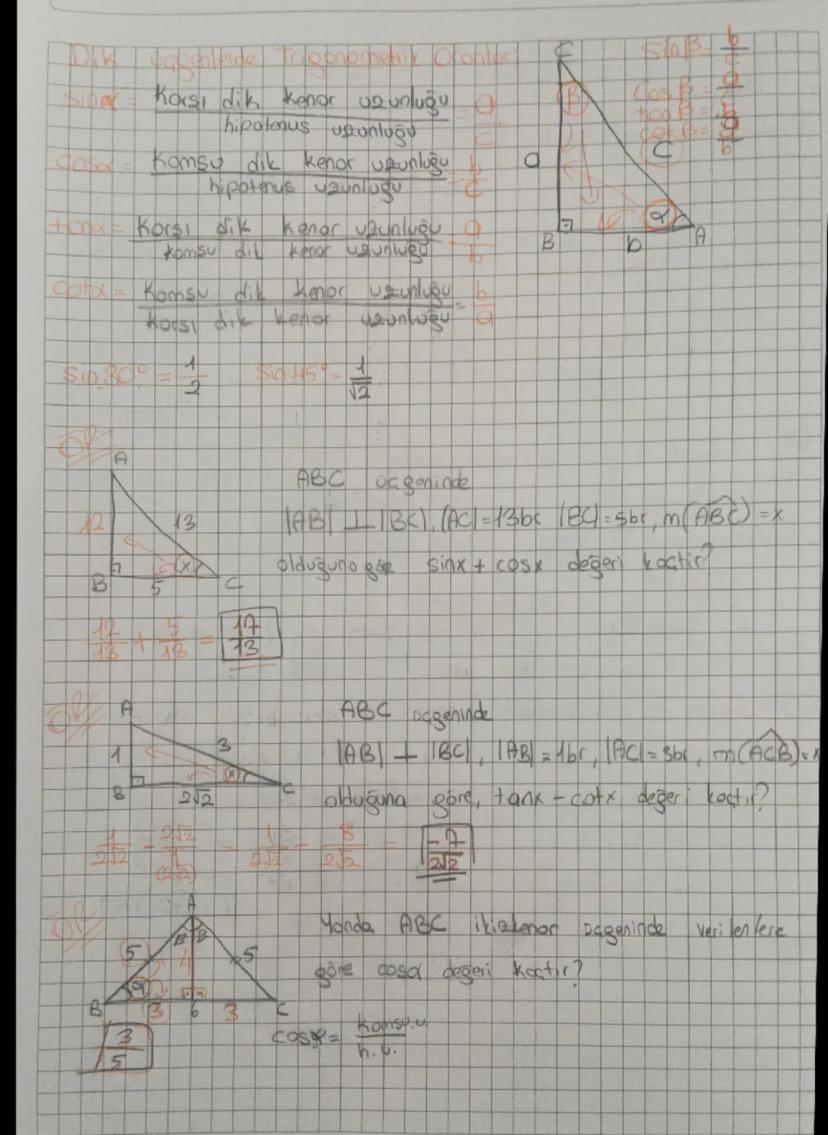 Dik üçgenlerde Trigonometrik Oranlar
sinα = Karşı dik kenar uzunluğu / hipotenus uzunluğu = a/c
cosα = Komşu dik kenar uzunluğu / hipotenus uzunluğu = b/c
tanα = Karşı dik kenar uzunluğu / komşu dik kenar uzunluğu = a/b
cotα = Komşu dik kenar uzunluğu / karşı dik kenar uzunluğu = b/a
C
β
a
c
α
B
b
A
sinβ = b/c
cosβ = a/c
tanβ =
cotβ =
sin 30° = 1/2 sin 45° = 1/√2
A
12
13
x
B
5
C
ABC üçgeninde
|AB| ⊥ |BC|, |AC| = 13br |BC| = 5br, m(ABC) = x
olduğuna göre sinx + cosx değeri kaçtır?
12/13 + 5/13 = 17/13
A
1
3
x
B
2√2
C
ABC üçgeninde
|AB| ⊥ |BC|, |AB| = 1br, |AC| = 3br, m(ACB) = x
olduğuna göre, tanx - cotx değeri kaçtır?
1/2√2 - 2√2/1 (2√2) = 1/2√2 - 8/2√2 = -7/2√2
A
B B
5
4
5
α
B
3
6
3
C
Yanda ABC ikizkenar üçgeninde verilenlere
göre cosα değeri kaçtır?
3/5
cosα = komşu.u. / h.u.